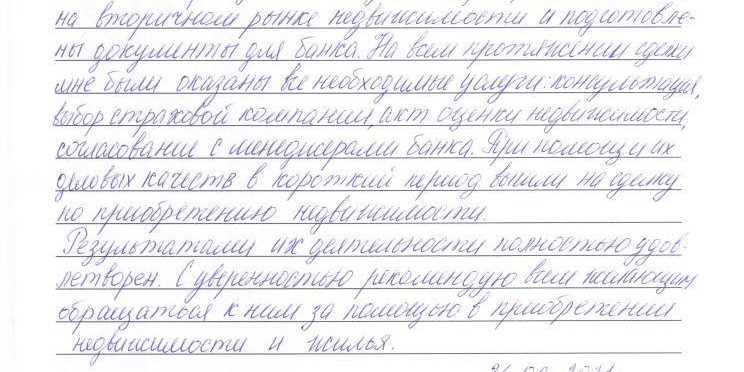 на вторичном рынке недвижимости и подготовле-
ны документы для банка. На всем протяжении сделки
мне были оказаны все необходимые услуги: консультация,
выбор страховой компании, акт оценки недвижимости,
согласование с менеджерами банка. При помощи их
деловых качеств в короткий период вышли на сделку
по приобретению недвижимости.
Результатами их деятельности полностью удов-
летворен. С уверенностью рекомендую всем желающим
обращаться к ним за помощью в приобретении
недвижимости и жилья.